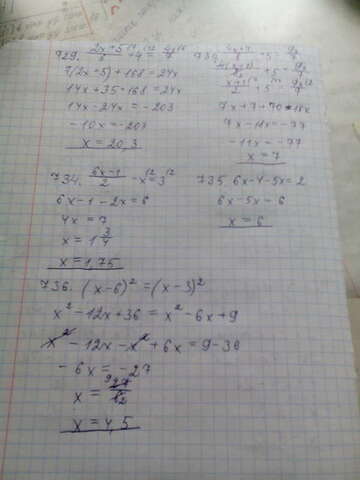 729.
7(2x+5)+168=24x
14x+35+168=24x
14x-24x=-203
-10x=-203
x=20,3
7x+7+70=18x
7x-18x=-77
-11x=-77
x=7
734. (6x-1)/2 -x=3
6x-1-2x=6
4x=7
x=1 3/4
x=1,75
735. 6x-4-5x=2
6x-5x=6
x=6
736. (x-6)²=(x-3)²
x²-12x+36=x²-6x+9
x²-12x-x²+6x=9-36
-6x=-27
x=
x=4,5